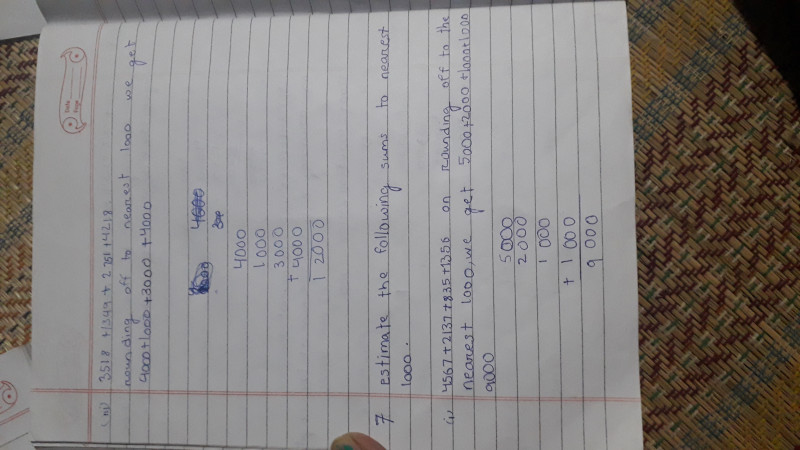 Date
Page
(iii) 3518 + 1349 + 2761 + 4218
rounding off to nearest 1000 we get
4000+1000+3000+4000
4000
1000
3000
+ 4000
12000
7 estimate the following sums to nearest
1000.
(i) 4567+2137+835+1356 on rounding off to the
nearest 1000, we get 5000+2000+1000+1000
9000
5000
2000
1000
+ 1000
9000